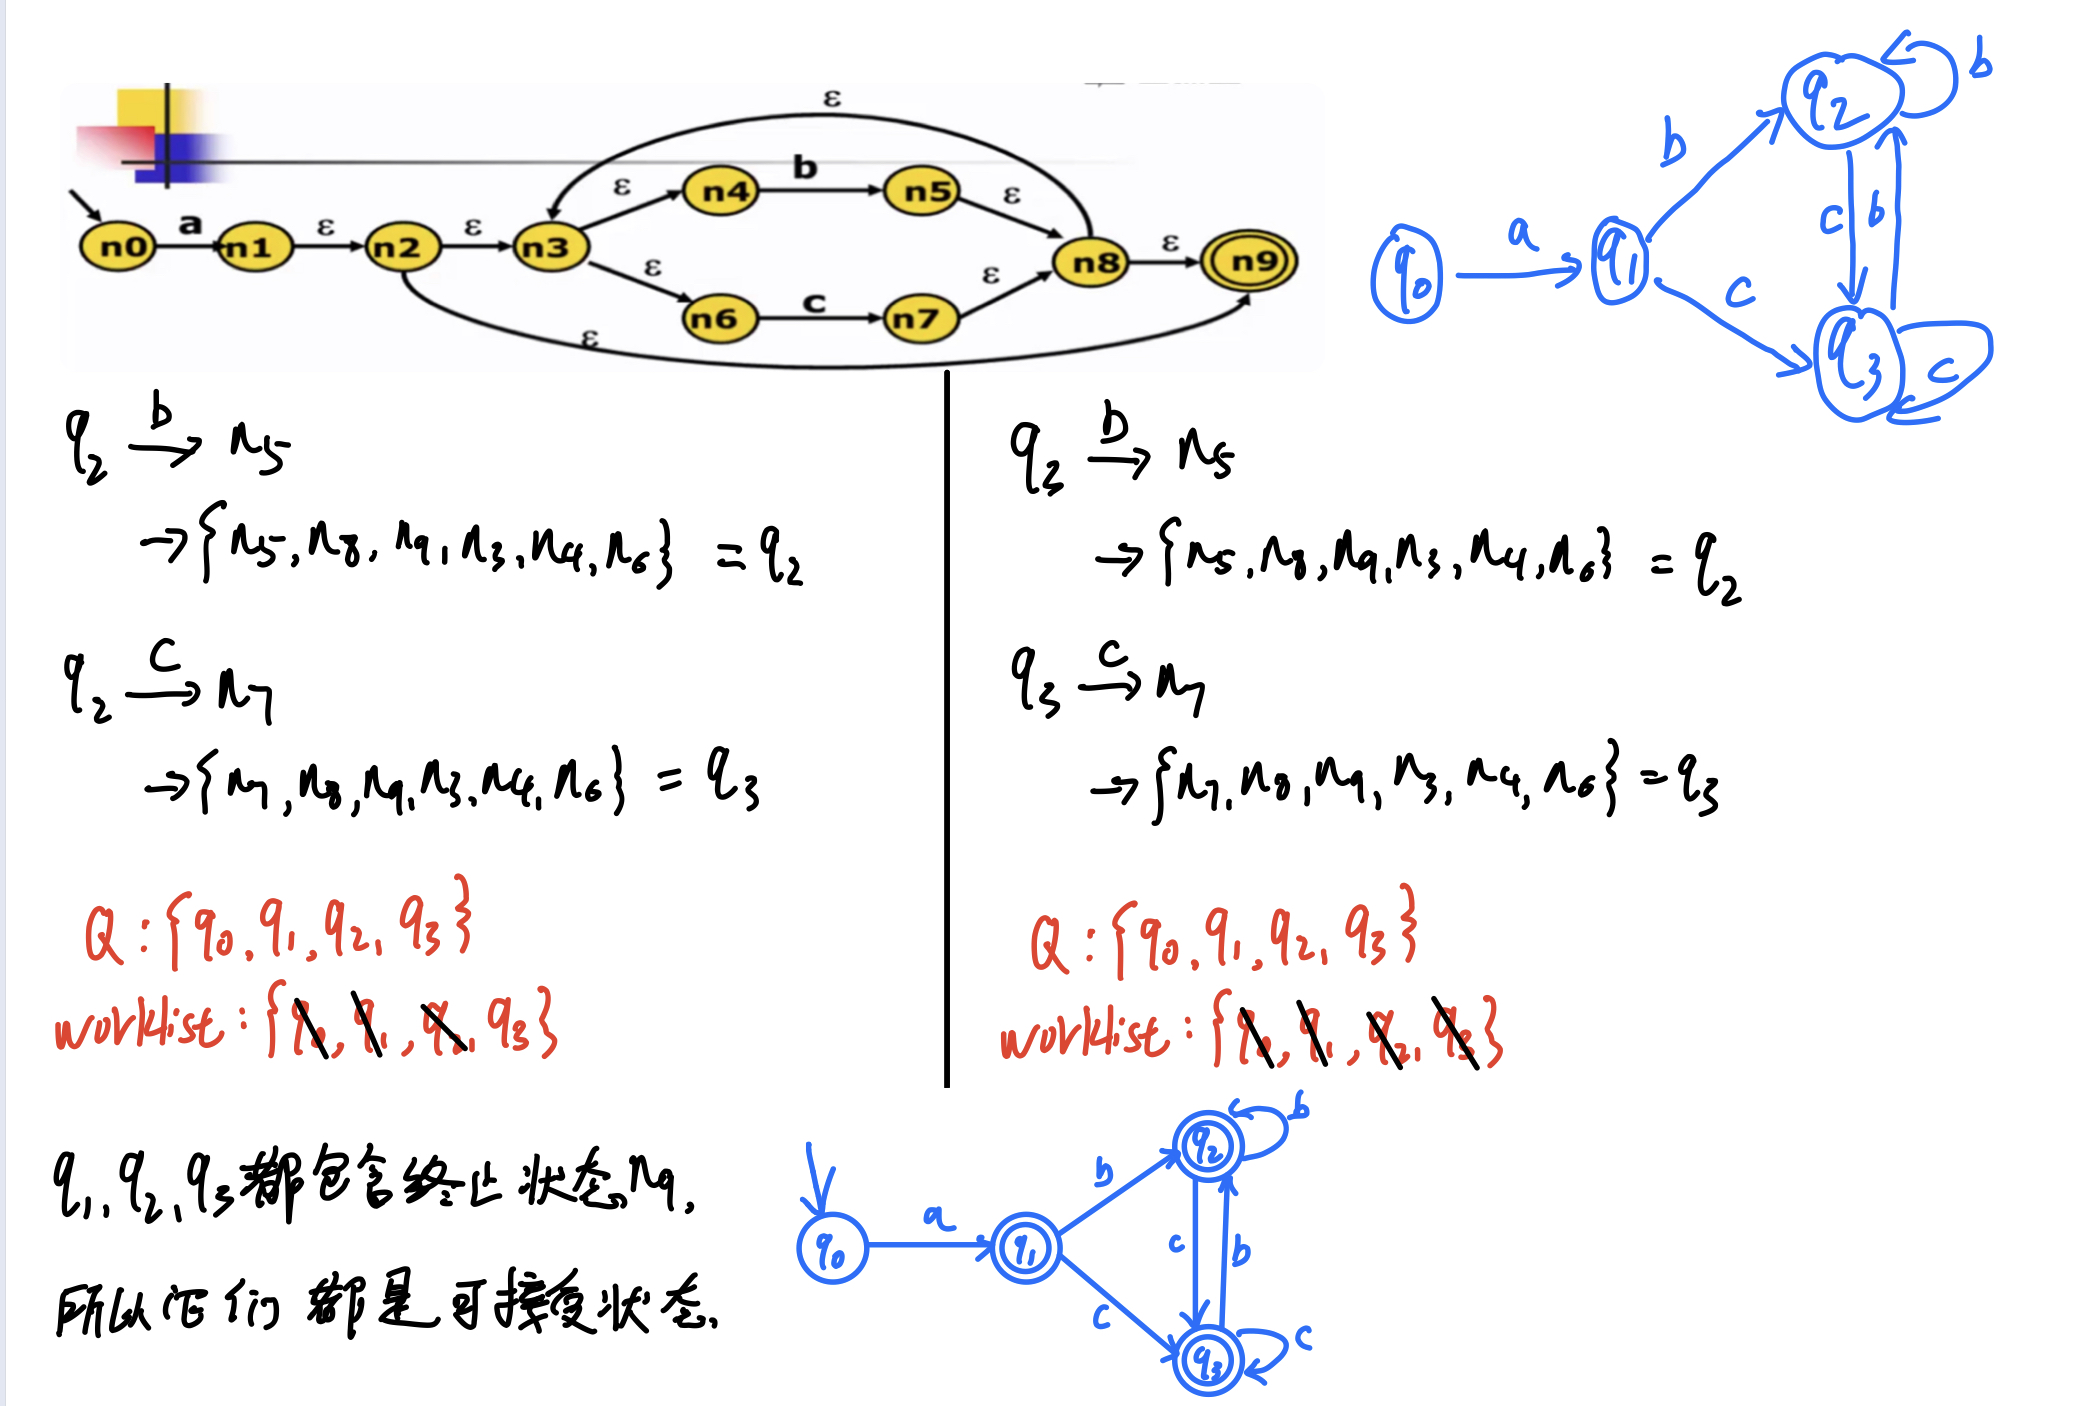 ε
b
ε ε
n4 b n5
a ε ε ε
n0 n1 n2 n3 n8 n9
ε ε
n6 c n7
ε
q2 b
b
c b
q0 a q1
c
q3 c
q2 b→ n5
→{n5, n8, n9, n3, n4, n6} = q2
q2 c→ n7
→{n7, n8, n9, n3, n4, n6} = q3
Q:{q0, q1, q2, q3}
worklist:{q0, q1, q2, q3}
q3 b→ n5
→{n5, n8, n9, n3, n4, n6} = q2
q3 c→ n7
→{n7, n8, n9, n3, n4, n6} = q3
Q:{q0, q1, q2, q3}
worklist:{q0, q1, q2, q3}
q1, q2, q3都包含终止状态n9,
所以它们都是可接受状态.
q2 b
b
q0 a q1
c b
c
q3 c